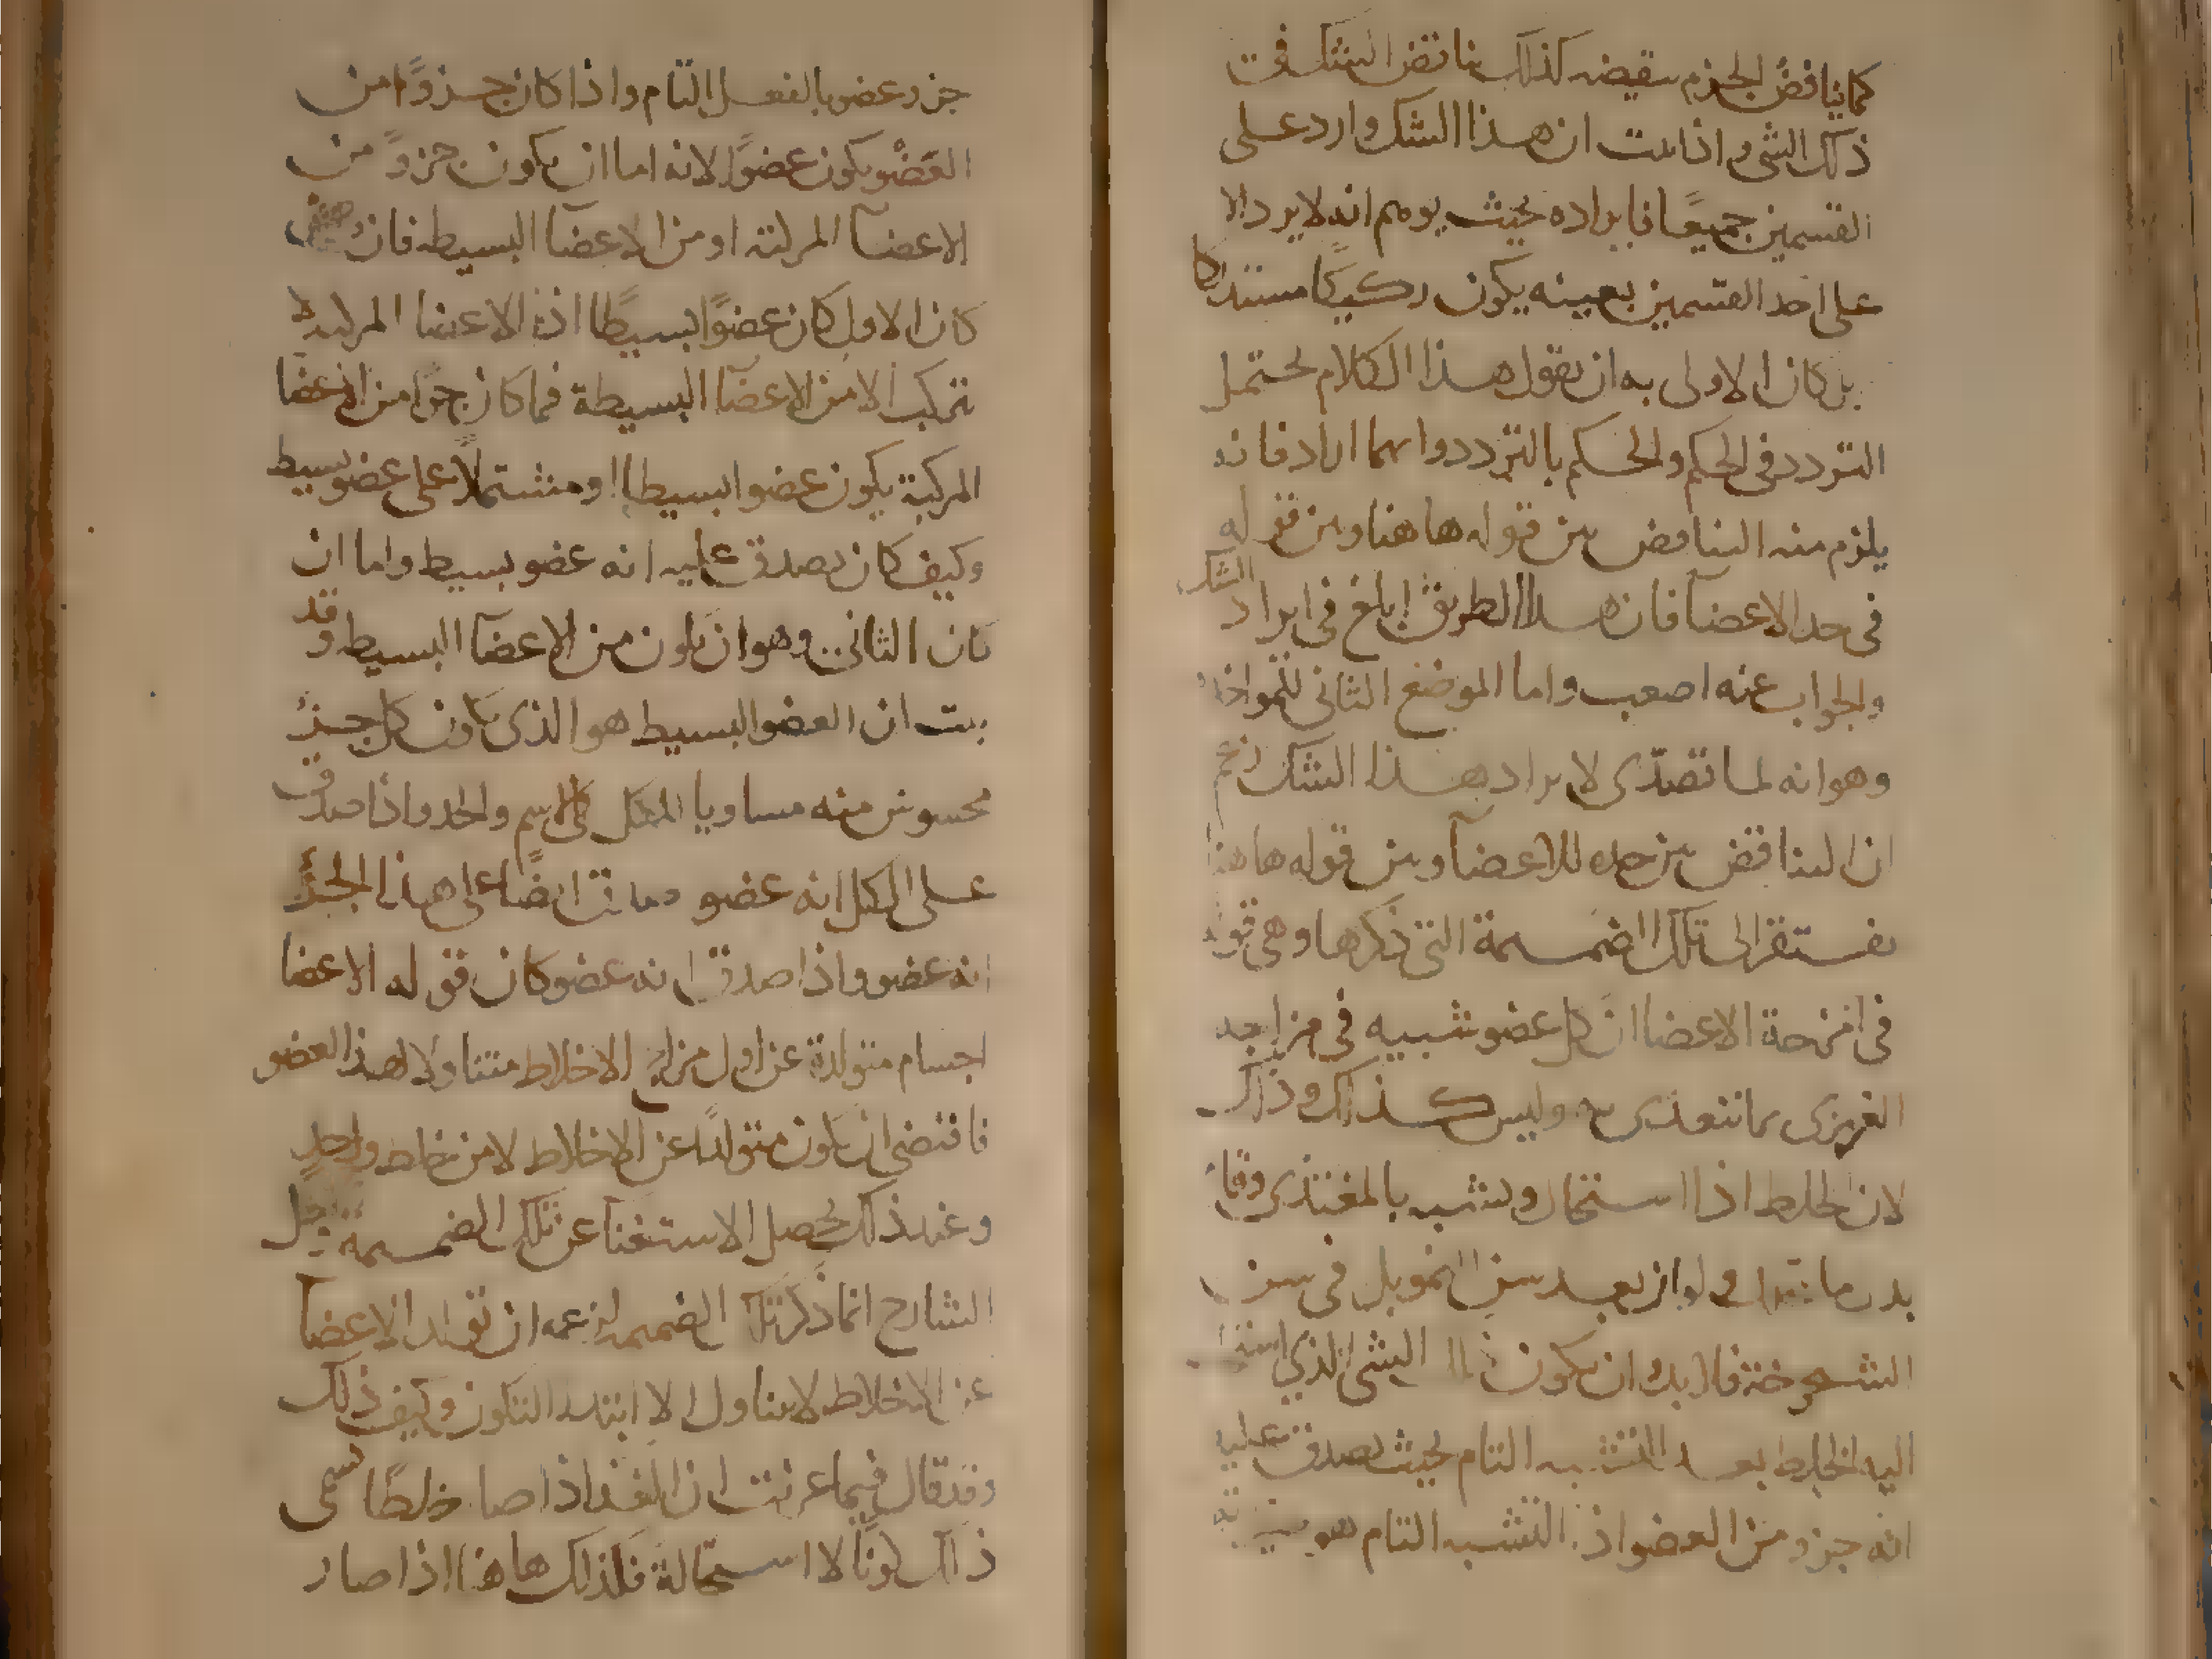 كما يناقض الجزم بنقيضه كذلك يناقض الشك في
ذلك الشى واذا ثبت ان هذا الشك وارد على
القسمين جميعًا فايراده بحيث يوهم انه لا يرد الا
على احد القسمين بعينه يكون ركيكًا مستدركا
بل كان الاولى به ان يقول هذا الكلام يحتمل
التردد في الحكم والحكم بالتردد وايهما اراد فانه
يلزم منه التناقض بين قوله هاهنا وبين قوله
في حد الاعضآ فان هذا الطريق ابلغ في ايراد الشك
والجواب عنه اصعب واما الموضع الثانى للمواخذه
وهو انه لما تصدّى لايراد هذا الشك زعم
ان التناقض بين حده للاعضآ وبين قوله هاهنا
يفتقر الى تلك الضميمة التى ذكرها وهى قوله
في امزجة الاعضا ان كل عضو شبيه في مزاجه
الغريزى بما يتغذى به وليس كذلك وذلك
لان الخلط اذا استحال وتشبه بالمغتذى وقام
بدل ما تحلل ولو از بعد سن النمو بل في سن
الشيخوخة فلا بد ان يكون ذلك الشى الذي استحال
اليه الخلط بعد التشبه التام بحيث يصدق عليه
انه جزو من العضو اذ التشبه التام هو
جزو عضو بالفعل التام واذا كان جزوًا من
العَضْو يكون عضوًا لانه اما ان يكون جزوً من
الاعضآ المركبة او من الاعضآ البسيطه فان
كان الاول كان عضوًا بسيطًا اذ الاعضا المركبة
تتركب الا من الاعضآ البسيطة فما كان جزًا من الاعضا
المركبة يكون عضوا بسيطا او مشتملاً على عضو بسيط
وكيف كان يصدق عليه انه عضو بسيط واما ان
كان الثانى وهو ان يكون من الاعضآ البسيطه وقد
ثبت ان العضو البسيط هو الذى يكون كل جزء
محسوس منه مساويا للكل في الاسم والحد واذا صدق
على الكل انه عضو صدق ايضًا على هذا الجزء
انه عضو واذا صدق انه عضو كان قوله الاعضا
اجسام متولدة عن اول مزاج الاخلاط متناولا لهذا العضو
فاقتضى ان يكون متولدًا عن الاخلاط لا من خلط واحدٍ
وعند ذلك يحصل الاستغنآ عن تلك الضميمة
الشارح انما ذكر تلك الضميمه لزعمه ان تولد الاعضآ
عن الاخلاط لا يتناول الا ابتدا التكون وكيف ذلك
وقد قال فيما عرفت ان الغذا اذا صار خلطًا سمى
ذلك كونًا لا استحالة فكذلك هاهنا اذا صار